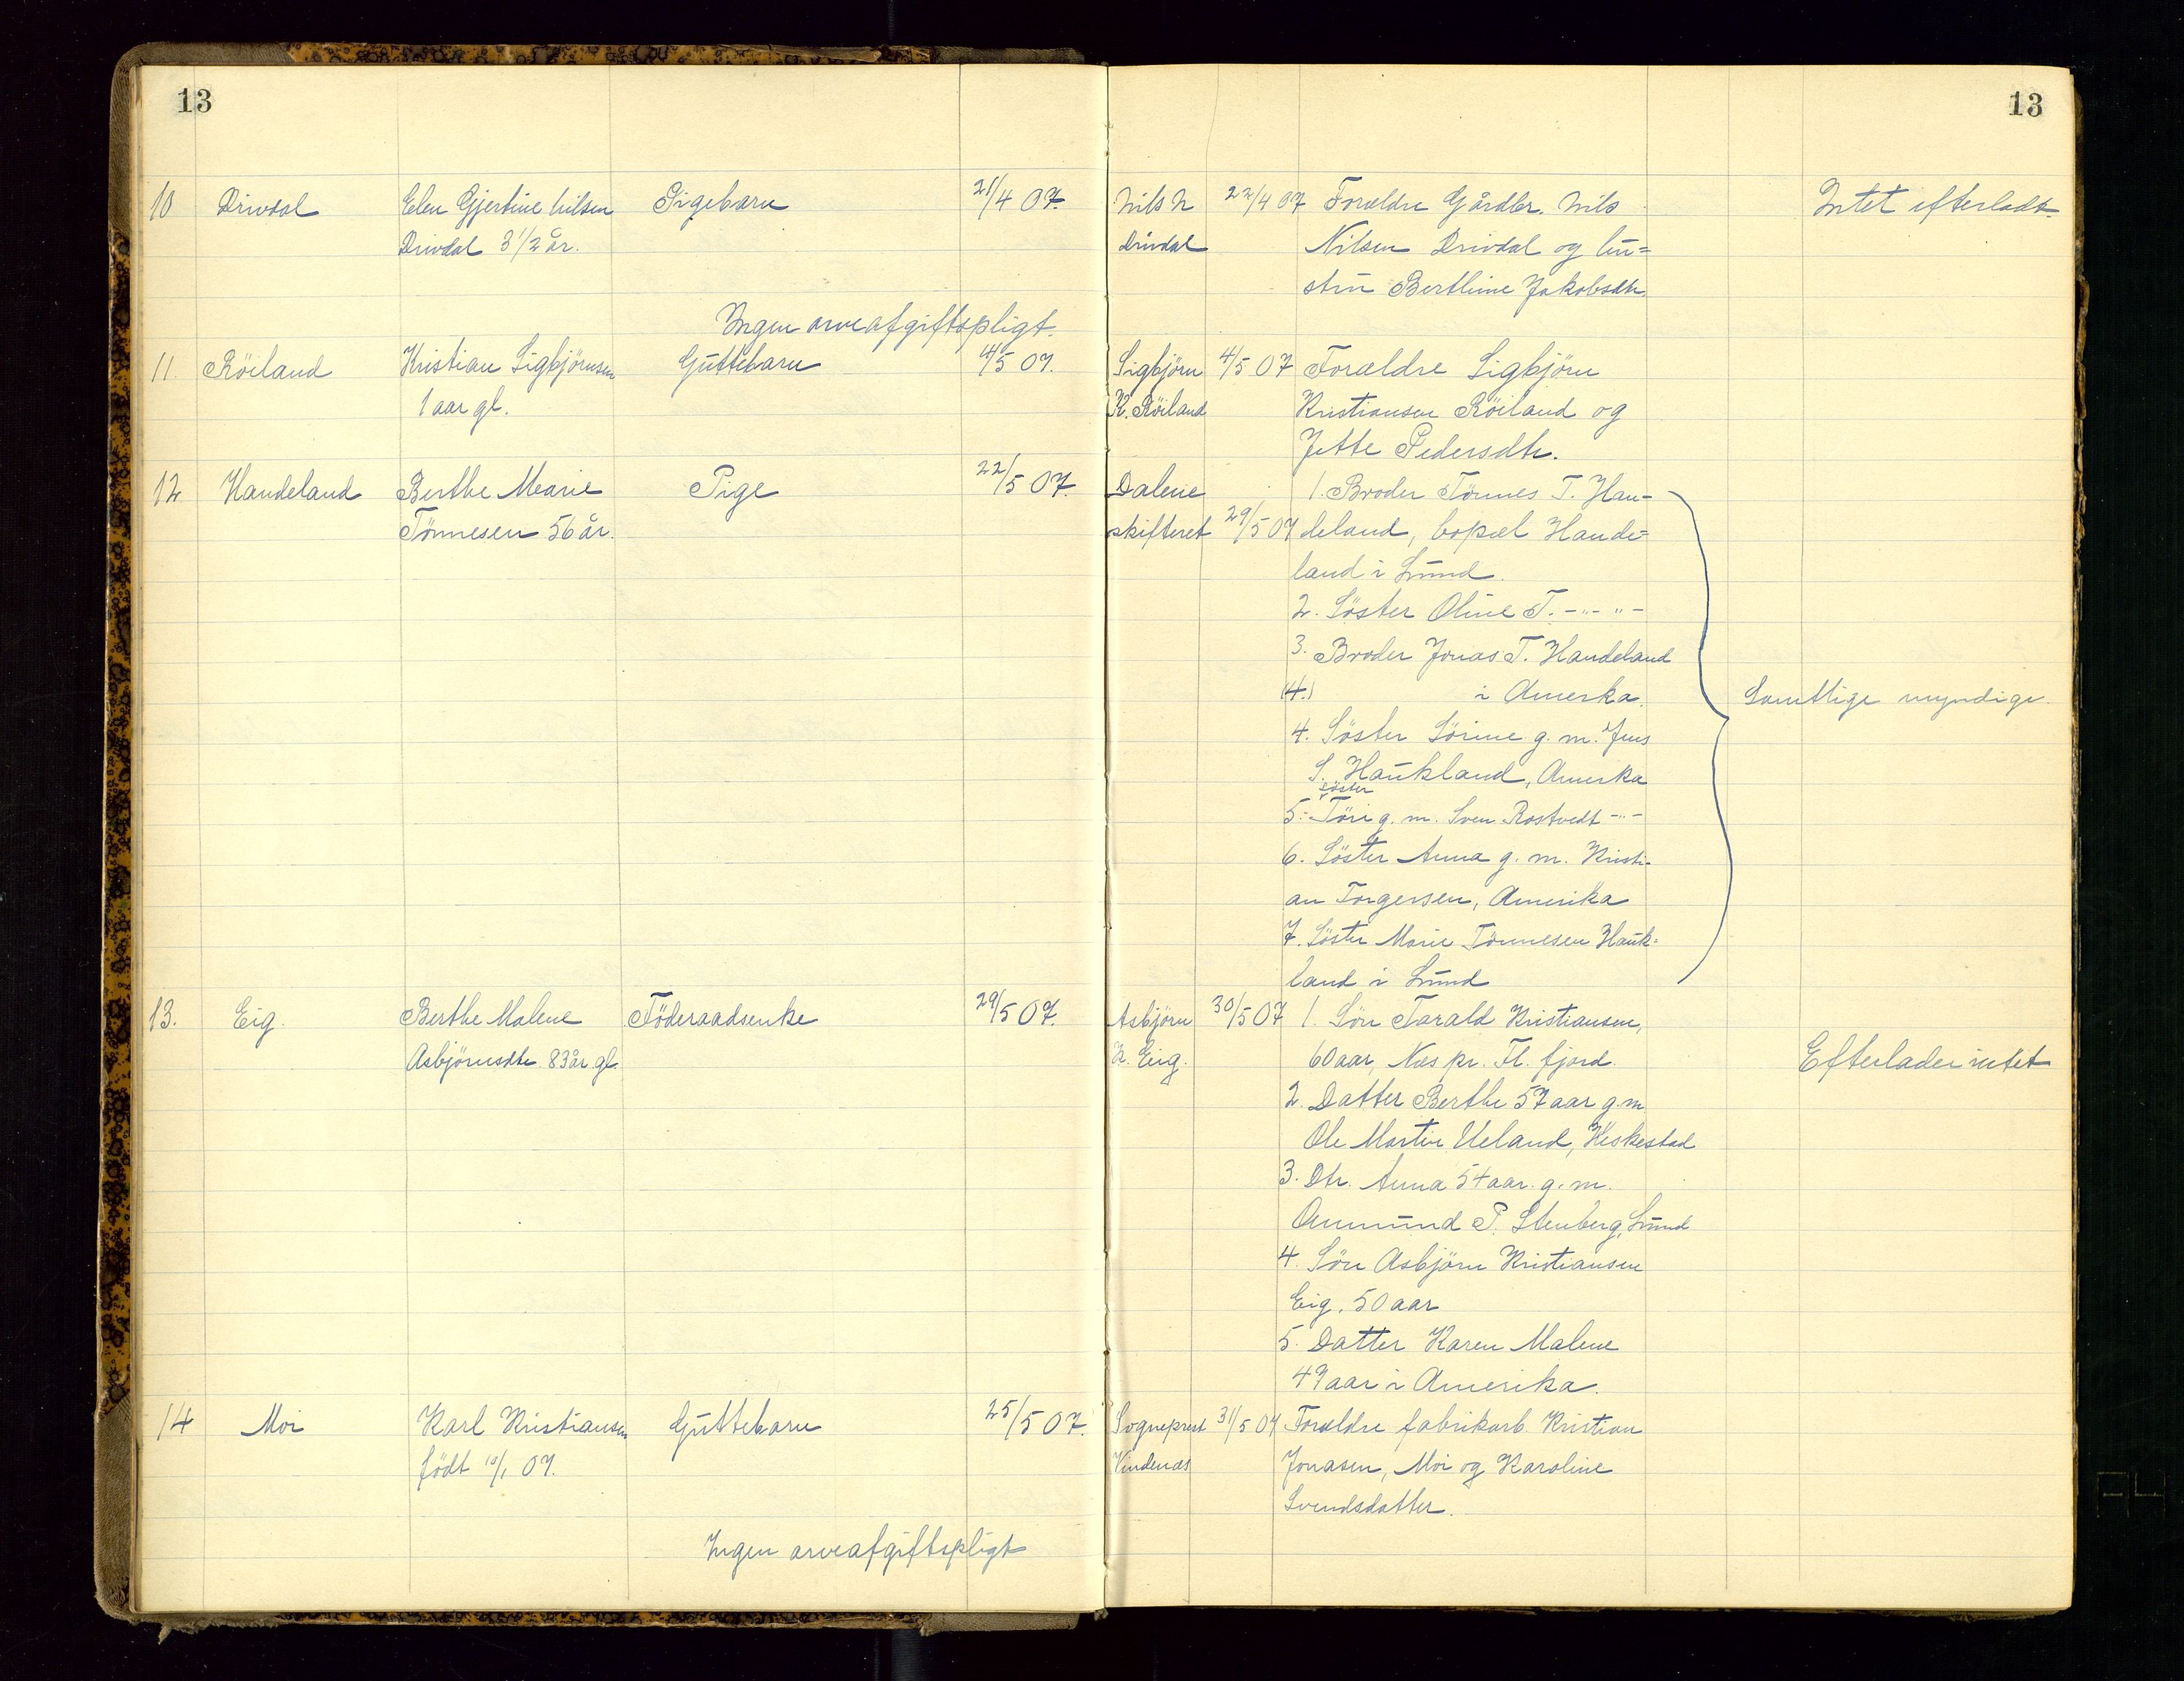 13
13
10 Drivdal Elen Gjertine Nilsen Pigebarn 21/4 07. Nils N 22/4 07 Forældre Gårdbr. Nils Intet efterladt.
Drivdal 3 1/2 år. Drivdal Nilsen Drivdal og hu=
stru Berthine Jakobsdtr.
Ingen arveafgiftspligt.
11. Röiland Kristian Sigbjörnsen Guttebarn 4/5 07. Sigbjörn 4/5 07 Forældre Sigbjörn
1 aar gl. K. Röiland Kristiansen Röiland og
Jette Pedersdtr.
12 Handeland Berthe Marie Pige 22/5 07. Dalene 1. Broder Tönnes T. Han-
Tönnesen 56 år. skifteret 29/5 07 deland, bopæl Hande=
land i Lund.
2. Söster Oline T. -"- "-
3. Broder Jonas T. Handeland
(4.) i Amerka. Samtlige myndige.
4. Söster Sörine g. m. Jens
S. Haukland, Amerka
söster
5. Töri g. m. Sven Rostvedt -"-
6. Söster Anna g. m. Kristi-
an Torgersen, Amerika
7. Söster Marie Tönnesen Hauk-
land i Lund
13. Eig. Berthe Malene Föderaadsenke 29/5 07. Asbjörn 30/5 07 1. Sön Tarald Kristiansen,
Asbjörnsdtr 83 år gl. K. Eig. 60 aar, Næs pr. Fl. fjord. Efterlader intet
2. Datter Berthe 57 aar g. m
Ole Martin Ueland, Heskestad
3. Dtr. Anna 54 aar. g. m.
Ommund P. Stenberg, Lund
4. Sön Asbjörn Kristiansen
Eig, 50 aar
5. Datter Karen Malene
47 aar i Amerika.
14 Moi Karl Kristiansen Guttebarn 25/5 07. Sogneprest 31/5 07 Forældre fabrikarb. Kristian
født 10/1 07. Vindenæs Jonasen, Moi og Karoline
Svendsdatter.
Ingen arveafgiftspligt